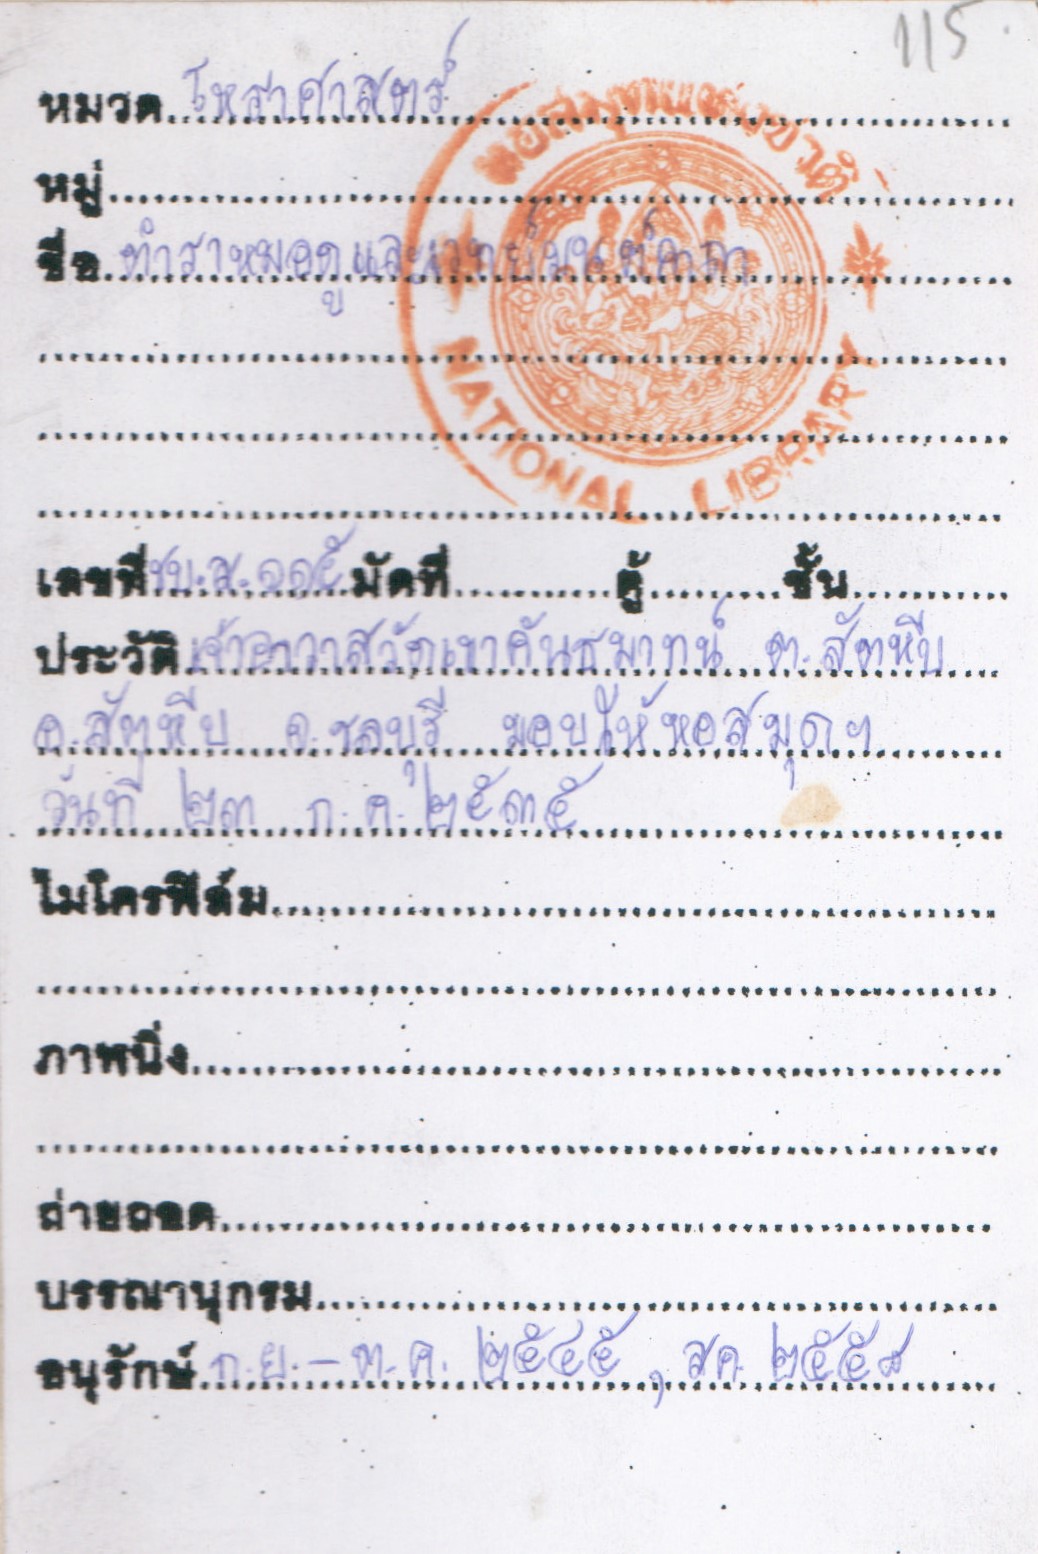 115
หมวด โหราศาสตร์
หอสมุดแห่งชาติ
NATIONAL LIBRARY
หมู่
ชื่อ ตำราหมอดูและเวทย์มนต์คาถา
เลขที่ ชบ.ส.๑๑๕ มัดที่ ตู้ ชั้น
ประวัติ เจ้าอาวาสวัดเขาคันธมาทน์ ต.สัตหีบ
อ.สัตหีบ จ.ชลบุรี มอบให้หอสมุดฯ
วันที่ ๒๓ ก.ค. ๒๕๓๕
ไมโครฟิล์ม
ภาพนิ่ง
ถ่ายถอด
บรรณานุกรม
อนุรักษ์ ก.ย. – ต.ค. ๒๕๔๕ , สค ๒๕๕๘